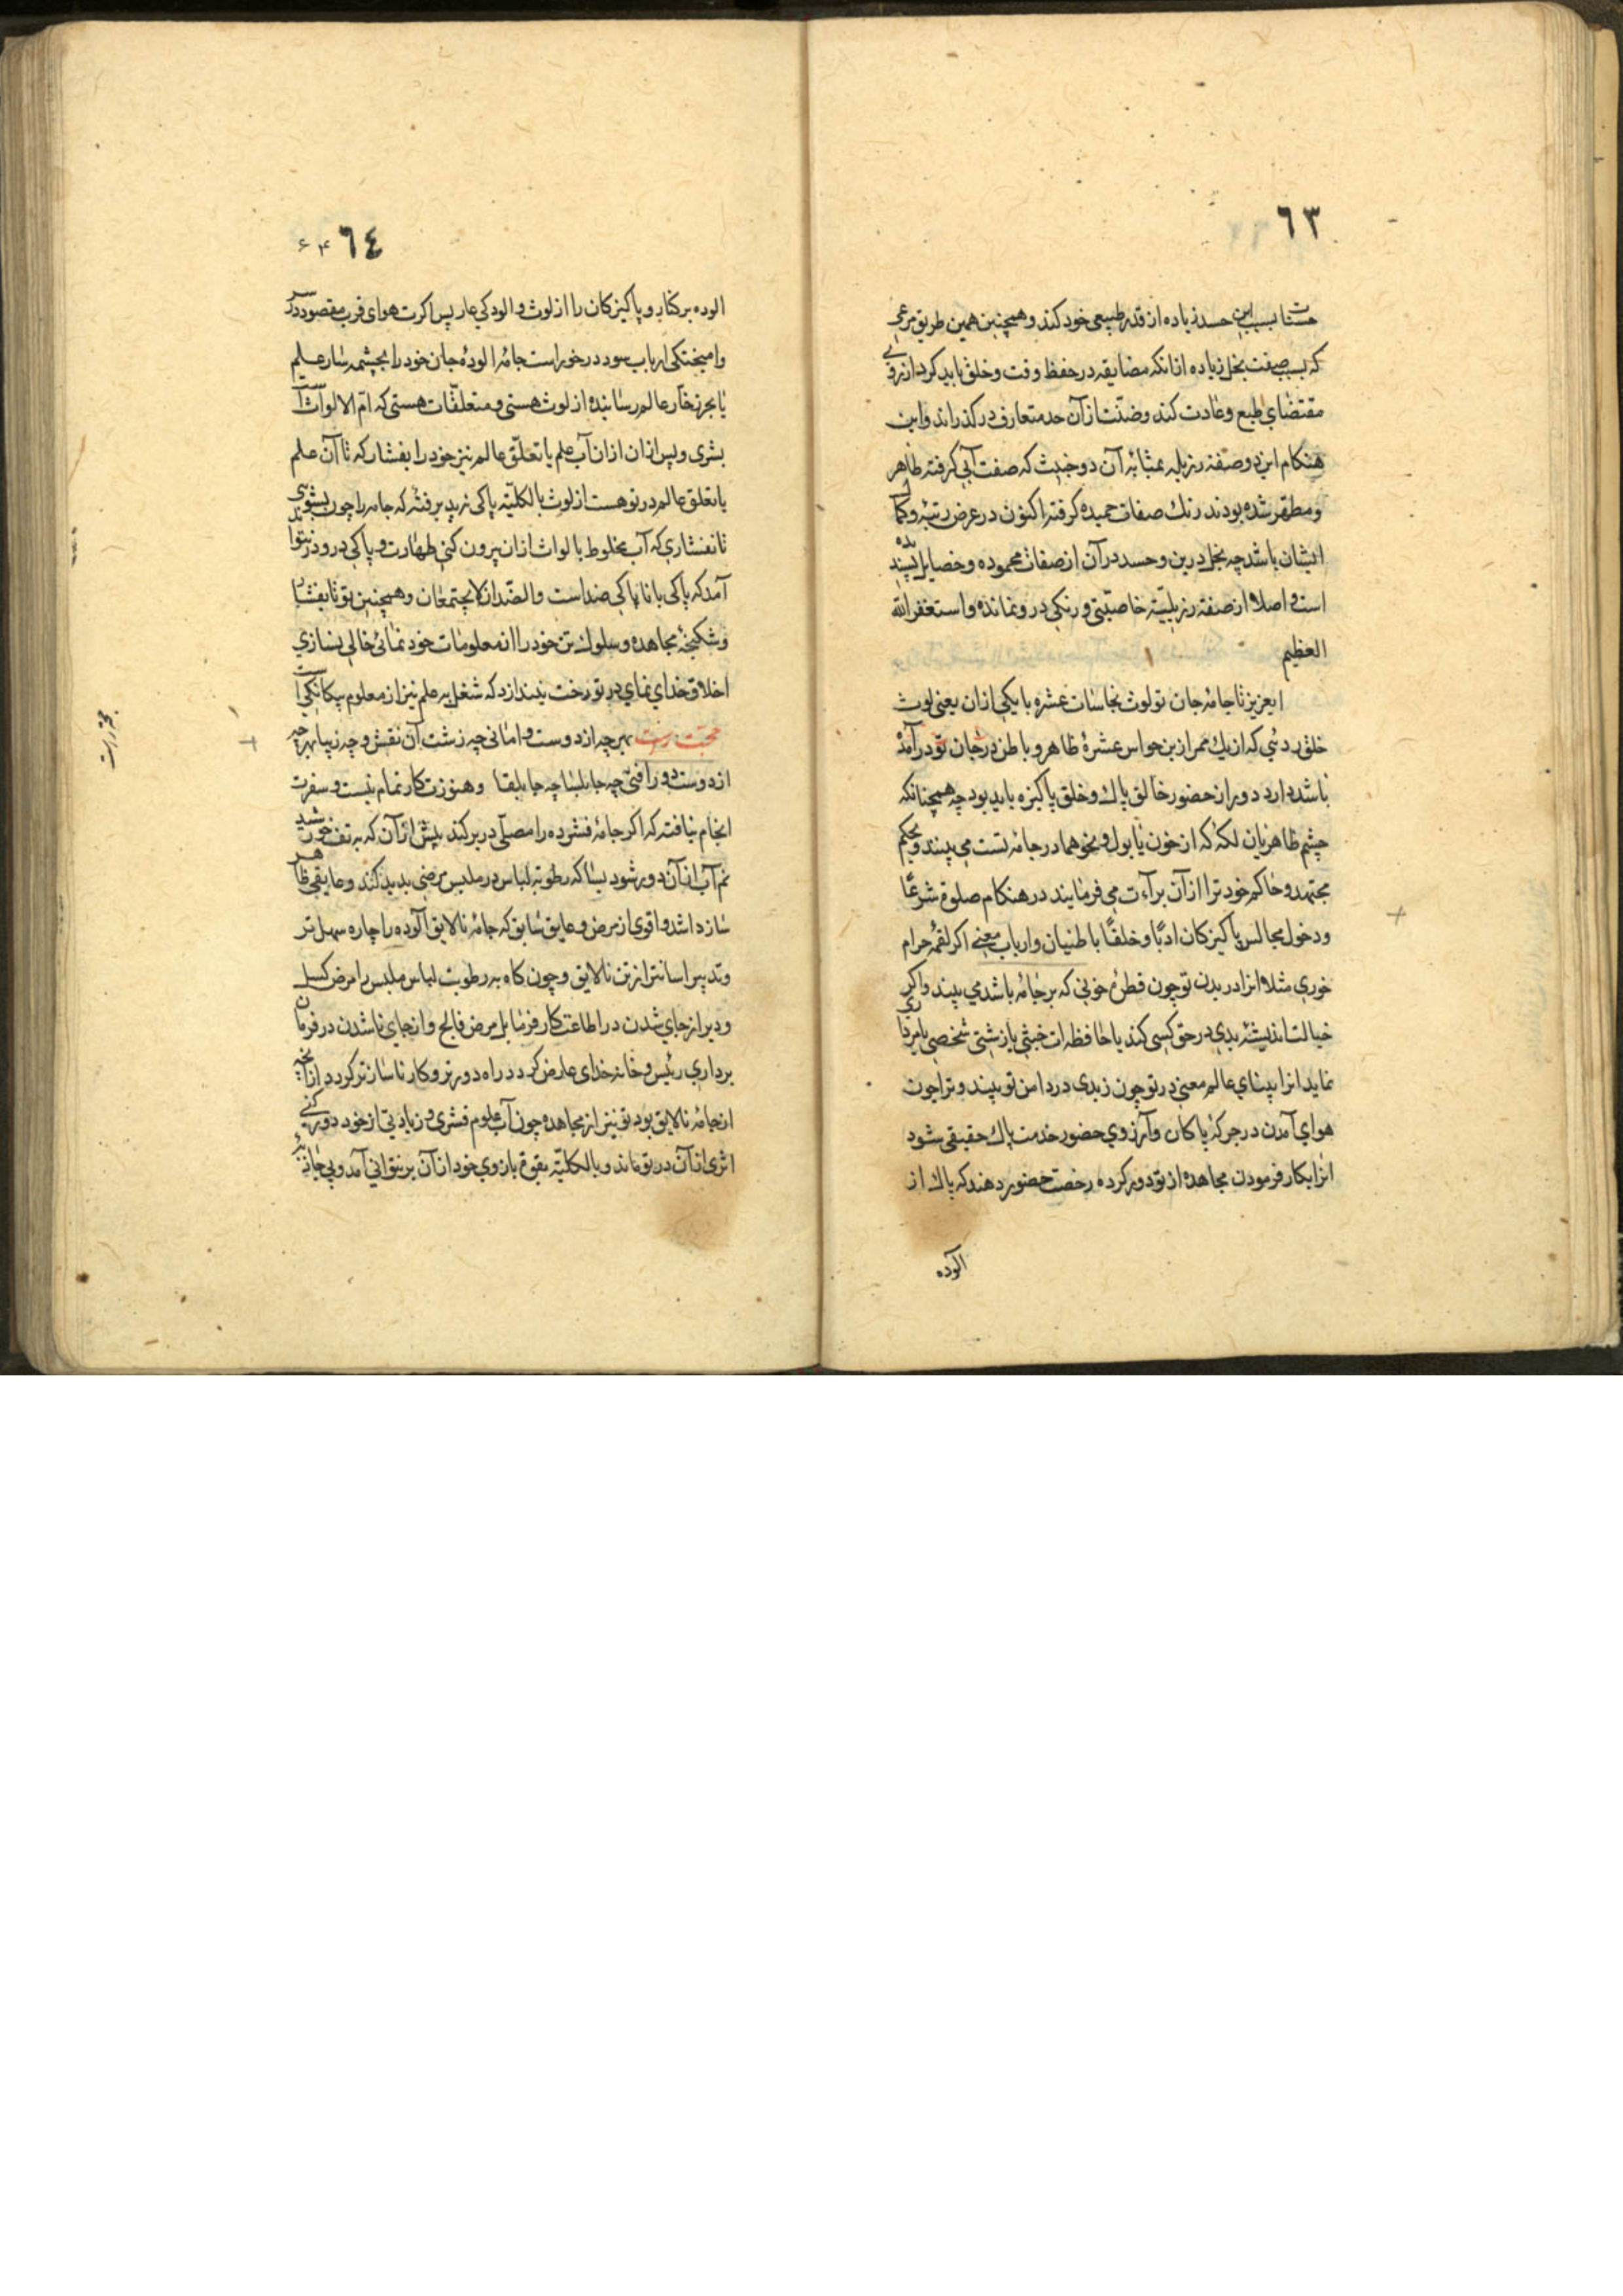 ٦٣
حسنات بسبب این حسد زیاده از قدر طبیعی خود کند و همچنین همین طریق مرعی
که بسبب صفت بخل زیاده از انکه مضایقه در حفظ وقت و خلق باید کرد از روی
مقتضای طبع و عادت کند و ضنّت از آن حد متعارف در کذراند و این
هنکام این دو صفه رزیله بمثابهٔ آن دو خبیث که صفت آبی کرفته طاهر
و مطهّر شده بودند رنك صفات حمیده کرفته اکنون در عرض رتبهٔ و کمال
ایشان باشد چه بخل درین و حسد در آن از صفات محموده و خصایل پسندیده
است و اصلا از صفهٔ رزیلیّه خاصیّتی و رنکی در و نمانده و استغفر الله
العظیم
ایعزیز تا جامهٔ جان تو لوث نجاسات عشره یا یکی از ان یعنی لوث
خلق ردئی که از یك ممر ازین حواس عشرهٔ ظاهر و باطن در جان تو در آمده
باشد دارد دور از حضور خالق پاك و خلق پاکیزه باید بود چه همچنانکه
چشم ظاهر بان لکهٔ که از خون یا بول و نحوهما در جامهٔ تست می بیند و بحکم
مجتهد و حاکم خود ترا از آن برآءت می فرمایند در هنکام صلوة شرعًا
و دخول مجالس پاکیزکان ادبًا و خلقًا باطنیان و ارباب معنی اکر لقمهٔ حرام
خوری مثلا انرا در بدن تو چون قطرهٔ خونی که بر جامهٔ باشد می بیند و اکر
خیالت اندیشهٔ بدی در حق کسی کند یا حافظه ات خبثی یا زشتی شخصی یا مردی
نماید انرا بینای عالم معنی در تو چون زبدی در دامن تو بیند و ترا چون
هوای آمدن در جرکهٔ پاکان و آرزوی حضور خدمت پاك حقیقی شود
انرا بکار فرمودن مجاهده از تو دور کرده رخصت حضور دهند که پاك از
آلوده
٦٤
۶۴
الوده برکنار و پاکیزکان را از لوث و الودکی عار پس اکرت هوای قرب مقصود در سر
و امیختکی ارباب سود در خور است جامهٔ الودهٔ جان خود را بچشمه سار علم
یا بحر زخّار عالم رسانیده از لوث هستی و متعلقّات هستی که امّ الالواث است
بشری و پس از ان از ان آب علم یا تعلّق عالم نیز خود را بفشار که تا آن علم
یا تعلق عالم در تو هست از لوث بالکلیّه پاکی نپذیرفتهٔ که جامه را چون بشوی
تا نفشاری که آب مخلوط بالواث از ان بیرون کنی طهارت و پاکی در و در نتواند
آمد که پاکی با ناپاکی ضد است و الضّدان لا یجتمعان و همچنین تو تا بفشار
و شکنجهٔ مجاهده و سلوك تن خود را از معلومات خود نمائی خالی نسازی
اخلاق خدای نمای در تو رخت نیندازد که شغل به علم نیز از معلوم بیکانکی است
محبّت رست بهرچه از دوست وامانی چه زشت آن نقش و چه زیبا بهرچه
از دوست دور افتی چه جابلسا چه جابلقا و هنوزت کار تمام نیست و سفرت
انجام نیافته که اکر جامهٔ فشرده را مصلّی در بر کند پیش از آن که به تف خورشید
نم آب از آن دور شود بسا که رطوبة لباس در ملبس مرضی بدید کند و عایقی ظاهر
سازد اشد و اقوی از مرض و عایق سابق که جامهٔ نالایق آلوده را چاره سهل تر
و تدبیر اسانتر از تن نالایق و چون کاه به رطوبت لباس ملبس را مرض کسل
و دیر از جای شدن در اطاعت کار فرما بل مرض فالج و از جای ناشدن در فرمان
برداری رئیس و خانه خدای عارض کردد راه دورتر و کار ناسازتر کردد از انچه
از جامهٔ نالایق بود تو نیز از مجاهده چون آب علوم فشری و زیادتی از خود دور کنی
اثری از آن در تو ماند و بالکلیّه بقوهٔ بازوی خود از آن بر نتوانی آمد و بی جاذبهٔ